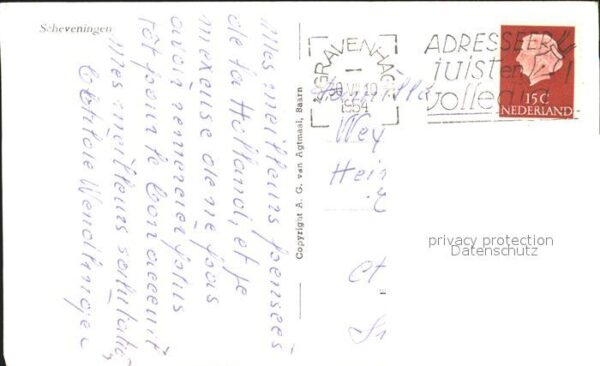 Scheveningen
Mes meilleurs pensées
de la Holland, et je
m'excuse de ne pas
avoir remercier plus
tôt pour le bon accueil
mes meilleurs salutations
Clotilde
Copyright A. G. van Agtmaal, Baarn
'S GRAVENHAGE
10
1954
ADRESSEER
juist en
volledig
15 C
NEDERLAND
Famille
Wey
Hein
privacy protection
Datenschutz